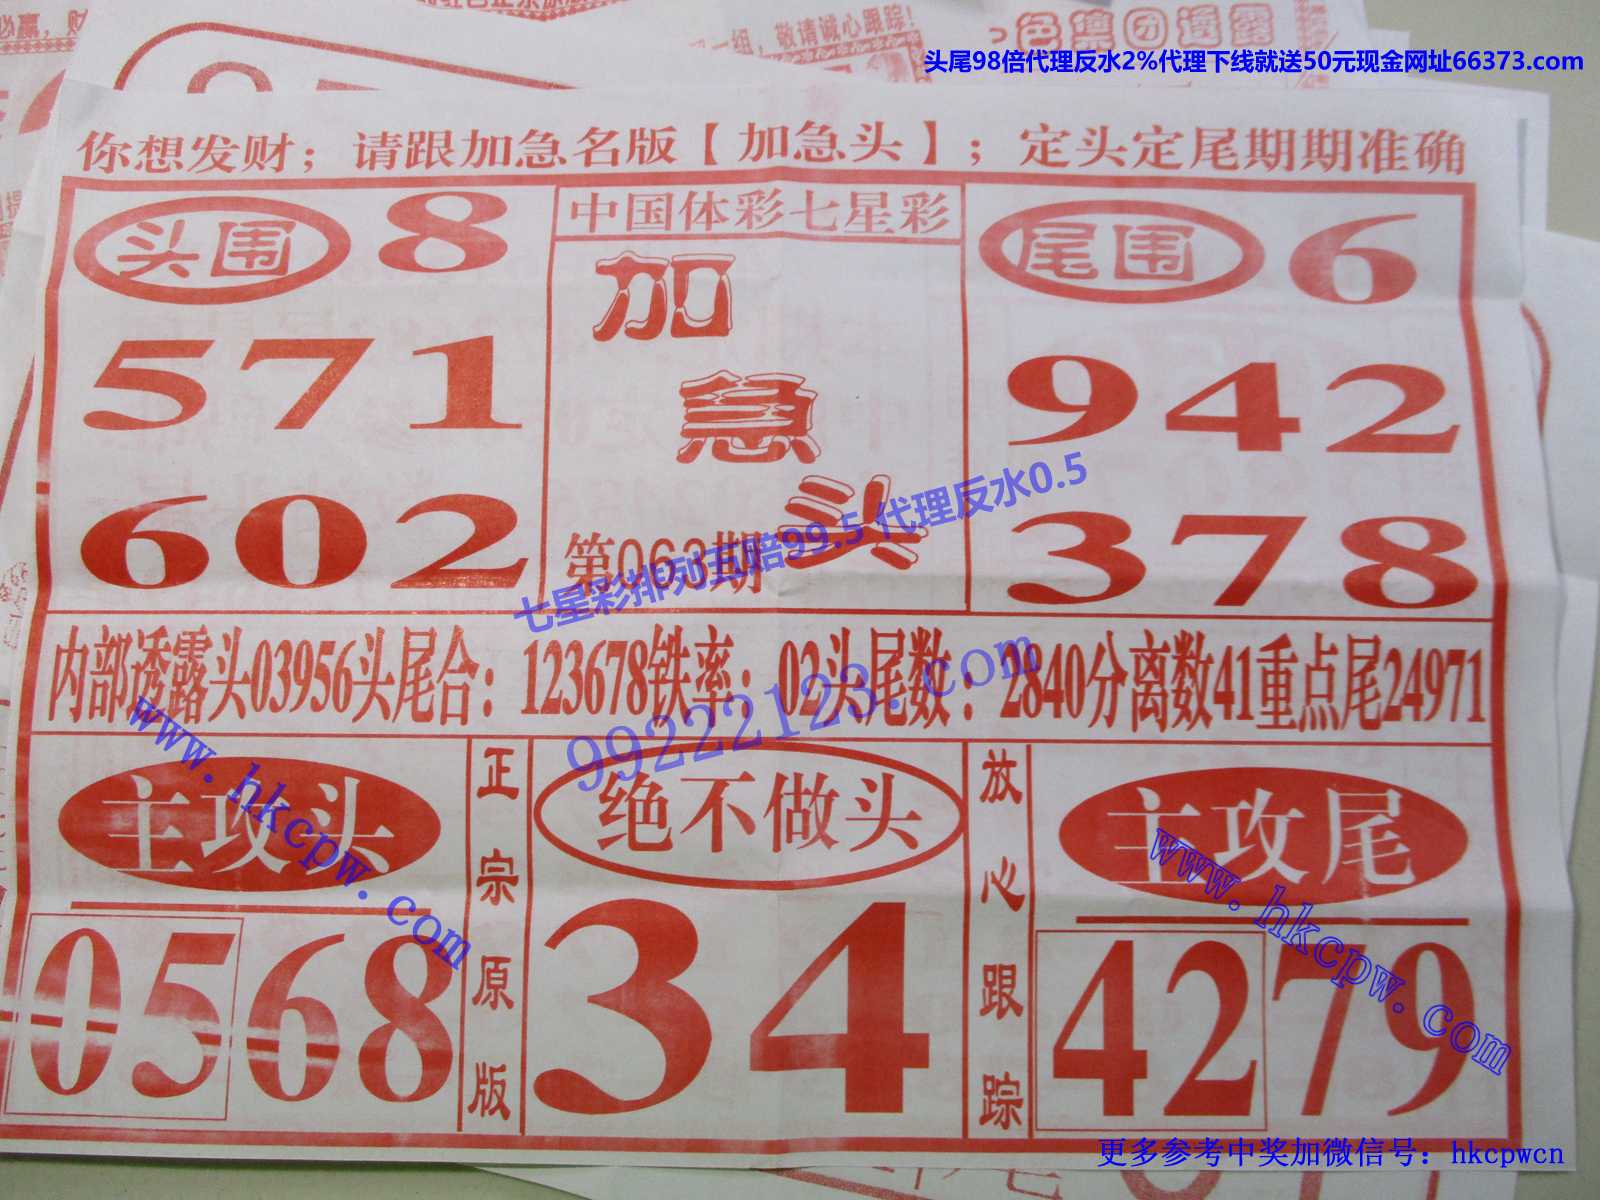 敬请诚心跟踪!
色集团透露
头尾98倍代理反水2%代理下线就送50元现金网址66373.com
你想发财；请跟加急名版【加急头】；定头定尾期期准确
头围 8
571
602
中国体彩七星彩
加
急
头
第063期
七星彩排列五赔99.5 代理反水0.5
尾围 6
942
378
内部透露头03956头尾合：123678铁率：02头尾数：2840分离数41重点尾24971
99222123.com
主攻头
0568
www.hkcpw.com
正宗原版
绝不做头
34
放心跟踪
主攻尾
4279
www.hkcpw.com
更多参考中奖加微信号：hkcpwcn